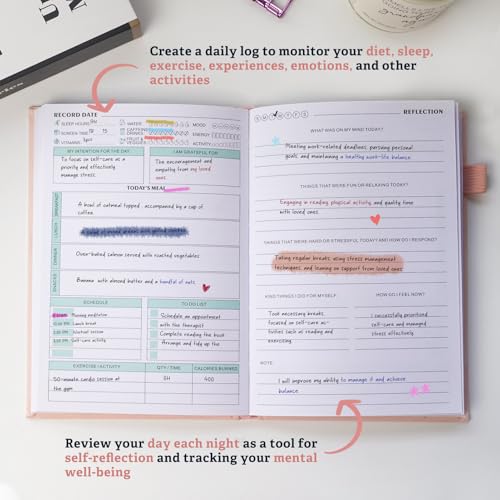 Create a daily log to monitor your diet, sleep,
exercise, experiences, emotions, and other
activities
RECORD DATE
SLEEP HOURS
WATER
MOOD
SCREEN TIME
CAFFEINE
DRINKS
ENERGY
VITAMINS
FRUIT &
VEGGIES
ACTIVITY
MY INTENTION FOR THE DAY
I AM GRATEFUL FOR
To focus on self-care as a
priority and effectively
manage stress.
The encouragement and
empathy from my loved
ones.
TODAY'S MEAL
BREAKFAST
A bowl of oatmeal topped , accompanied by a cup of
coffee.
LUNCH
DINNER
Oven-baked salmon served with roasted vegetables
SNACKS
Banana with almond butter and a handful of nuts.
SCHEDULE
TO DO LIST
Morning meditation
Lunch break
Workout session
Self-care activity
Schedule an appointment
with the therapist
Complete reading the book
Arrange and tidy up the
EXERCISE / ACTIVITY
QTY / TIME
CALORIES BURNED
50-minute cardio session at
the gym
400
REFLECTION
WHAT WAS ON MY MIND TODAY?
Meeting work-related deadlines, pursing personal
goals, and maintaining a healthy work-life balance.
THINGS THAT WERE FUN OR RELAXING TODAY?
Engaging in reading, physical activity, and quality time
with loved ones.
THINGS THAT WERE HARD OR STRESSFUL TODAY? AND HOW DO I RESPOND?
Taking regular breaks, using stress management
techniques, and leaning on support from loved ones
KIND THINGS I DO FOR MYSELF
HOW DO I FEEL NOW?
Took necessary breaks,
focused on self-care ac-
tivities such as reading and
exercising.
I successfully prioritized
self-care and managed
stress effectively.
NOTE:
I will improve my ability to manage it and achieve
balance.
Review your day each night as a tool for
self-reflection and tracking your mental
well-being